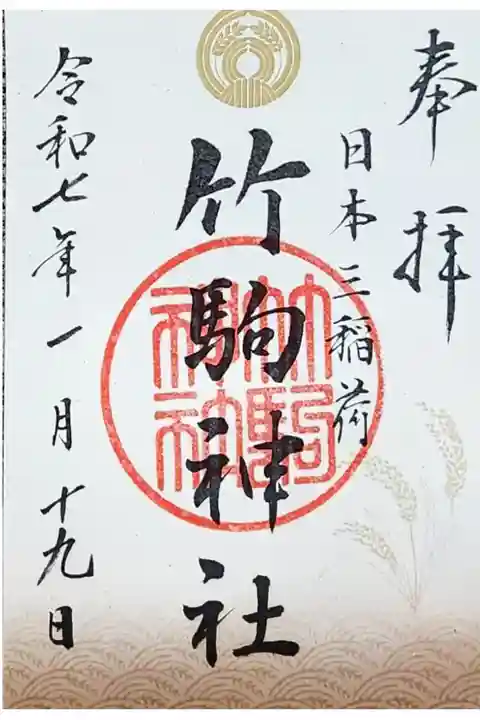 奉拝
日本三稲荷
竹駒神社
竹駒
神社
令和七年一月十九日